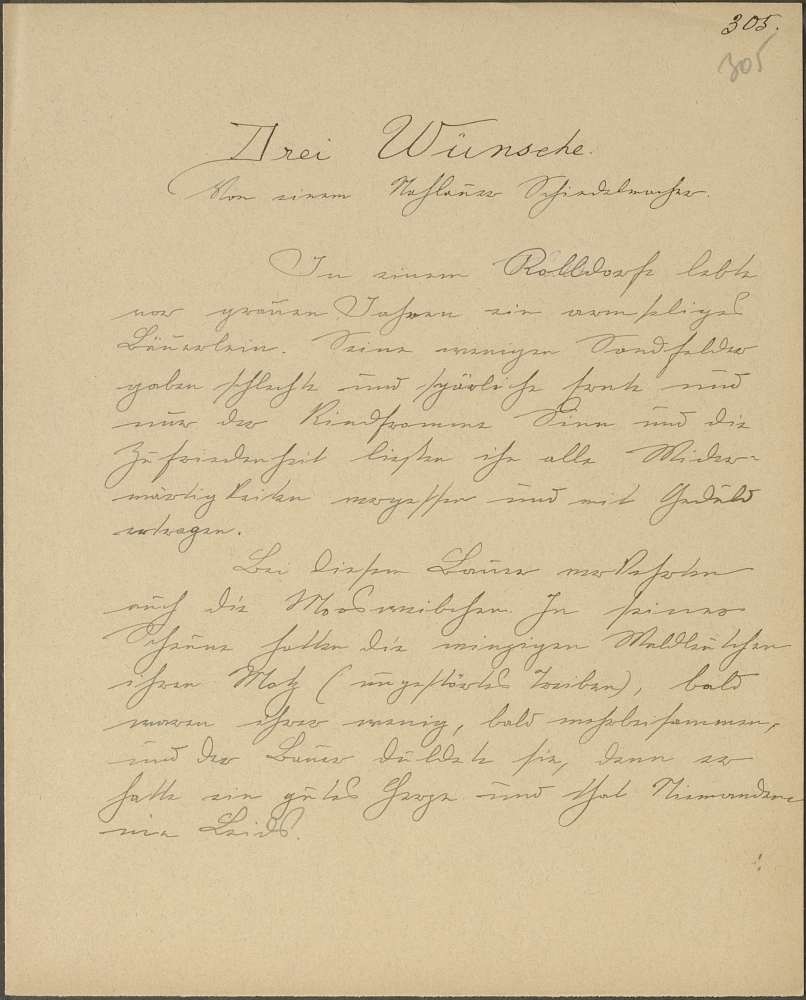 305.
305
Drei Wünsche.
Von einem Schindelmacher.
In einem Rolldorfe lebte
vor grauen Jahren ein armseliges
Bäuerlein. Seine wenigen Sandfelder
gaben schlechte und spärliche Ernte und
nur der Kindfromme Sinn und die
Zufriedenheit ließen ihn alle Wider-
wärtigkeiten vergessen und mit Geduld
ertragen.
Bei diesem Bauer verkehrten
auch die Moosweibchen. In seiner
Scheune hatten die winzigen Waldleutchen
ihren (ungestörtes Treiben), bald
waren ihrer wenig, bald mehr beisammen,
und der Bauer duldete sie, denn er
hatte ein gutes Herze und that Niemandem
nie Leids.